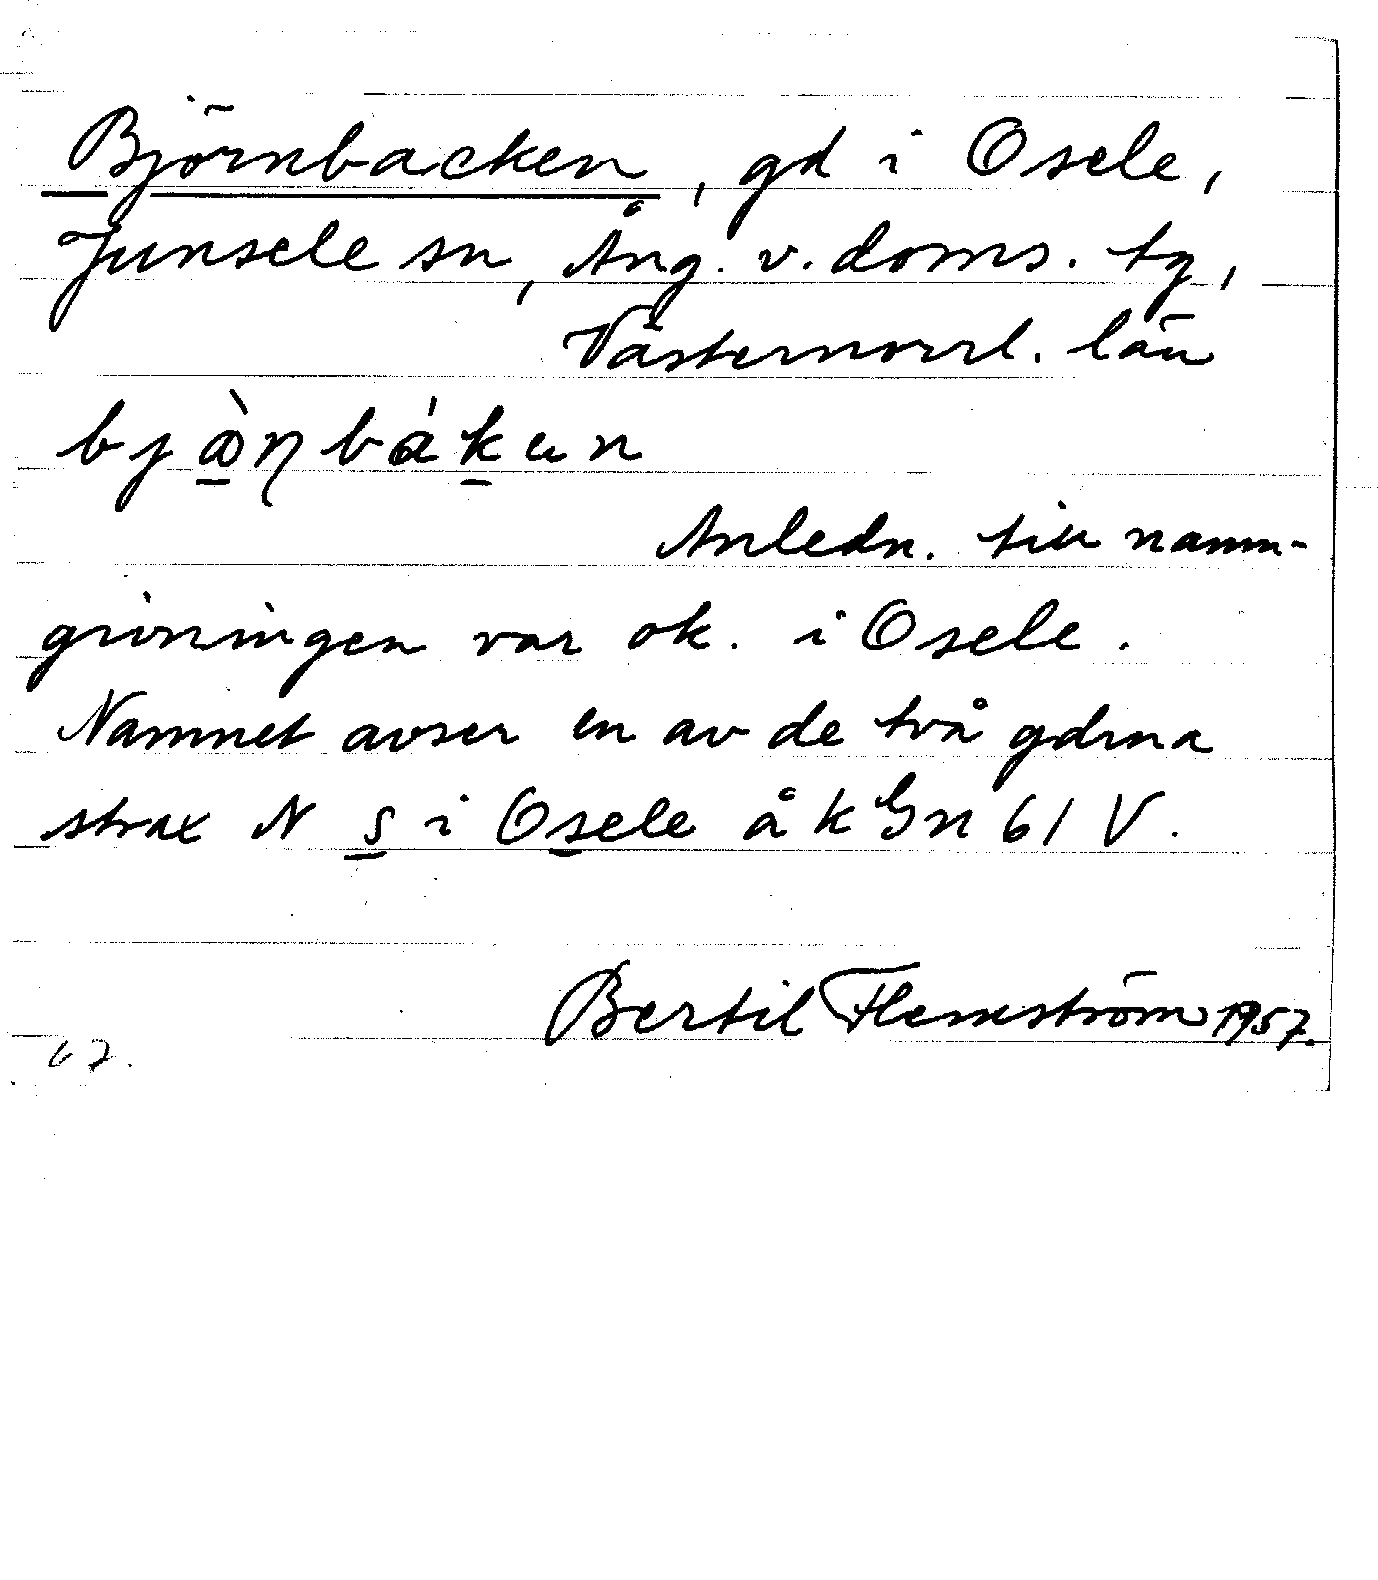 Björnbacken, gd i Osele,
Junsele sn, Ång. v. doms. tg,
Västernorrl. län
Anledn. till namn-
givningen var ok. i Osele.
Namnet avser en av de två gdrna
strax N s i Osele å kGn 61 V.
Bertil Flemström 1957.
67.